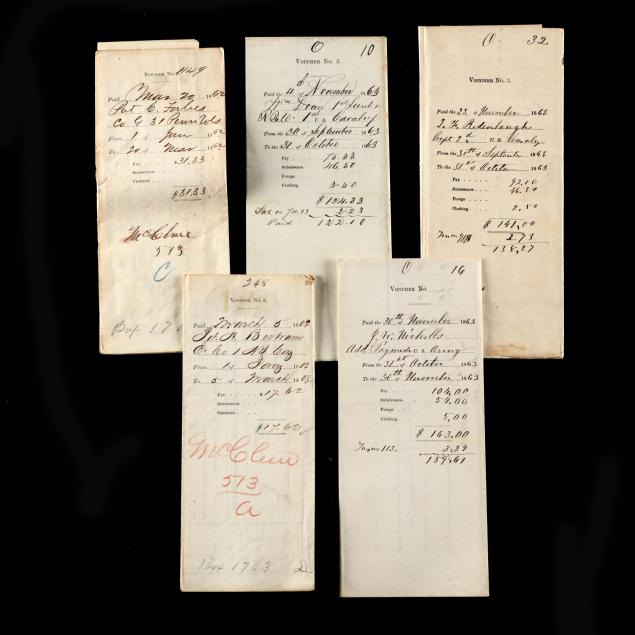 VOUCHER No. 449
Paid Mar 20 1862
Pvt C. Forbes
Co G 31 Penn Vols
From 1 of Jan 1862
To 20 of Mar 1862
Pay 31.33
$31.33
McClure
513
C
Box 17
O 10
VOUCHER No. 3.
Paid the 11th of November 1863
1st Lieut &
R.Q.M. 1st U.S. Cavalry
From the 30 of September 1863
To the 31 of October 1863
Pay 75.33
Subsistence 46.50
Forage
Clothing 2.50
$ 124.33
Tax on 74.33 2.23
Paid 122.10
O. 32
VOUCHER No. 3.
Paid the 23 of November 1863
T. F. Rodenbough
Capt 2d U.S. Cavalry
From the 30th of September 1863
To the 31st of October 1863
Pay 92.00
Subsistence 46.50
Forage
Clothing 2.50
$ 141.00
Tax on 2.73
138.27
248
VOUCHER No. 5.
Paid March 5 1862
Bertram
From 1st Jany 1862
To 5 of March 1862
Pay 17.62
$17.62
McClure
513
a
Box 1763
O 16
VOUCHER No
Paid the 30th of November 1863
J. W. Nicholls
Add. Paymaster U.S. Army
From the 31st of October 1863
To the 30th of November 1863
Pay 104.00
Subsistence 54.00
Forage
Clothing 5.00
$ 163.00
Tax on 113. 3.39
159.61